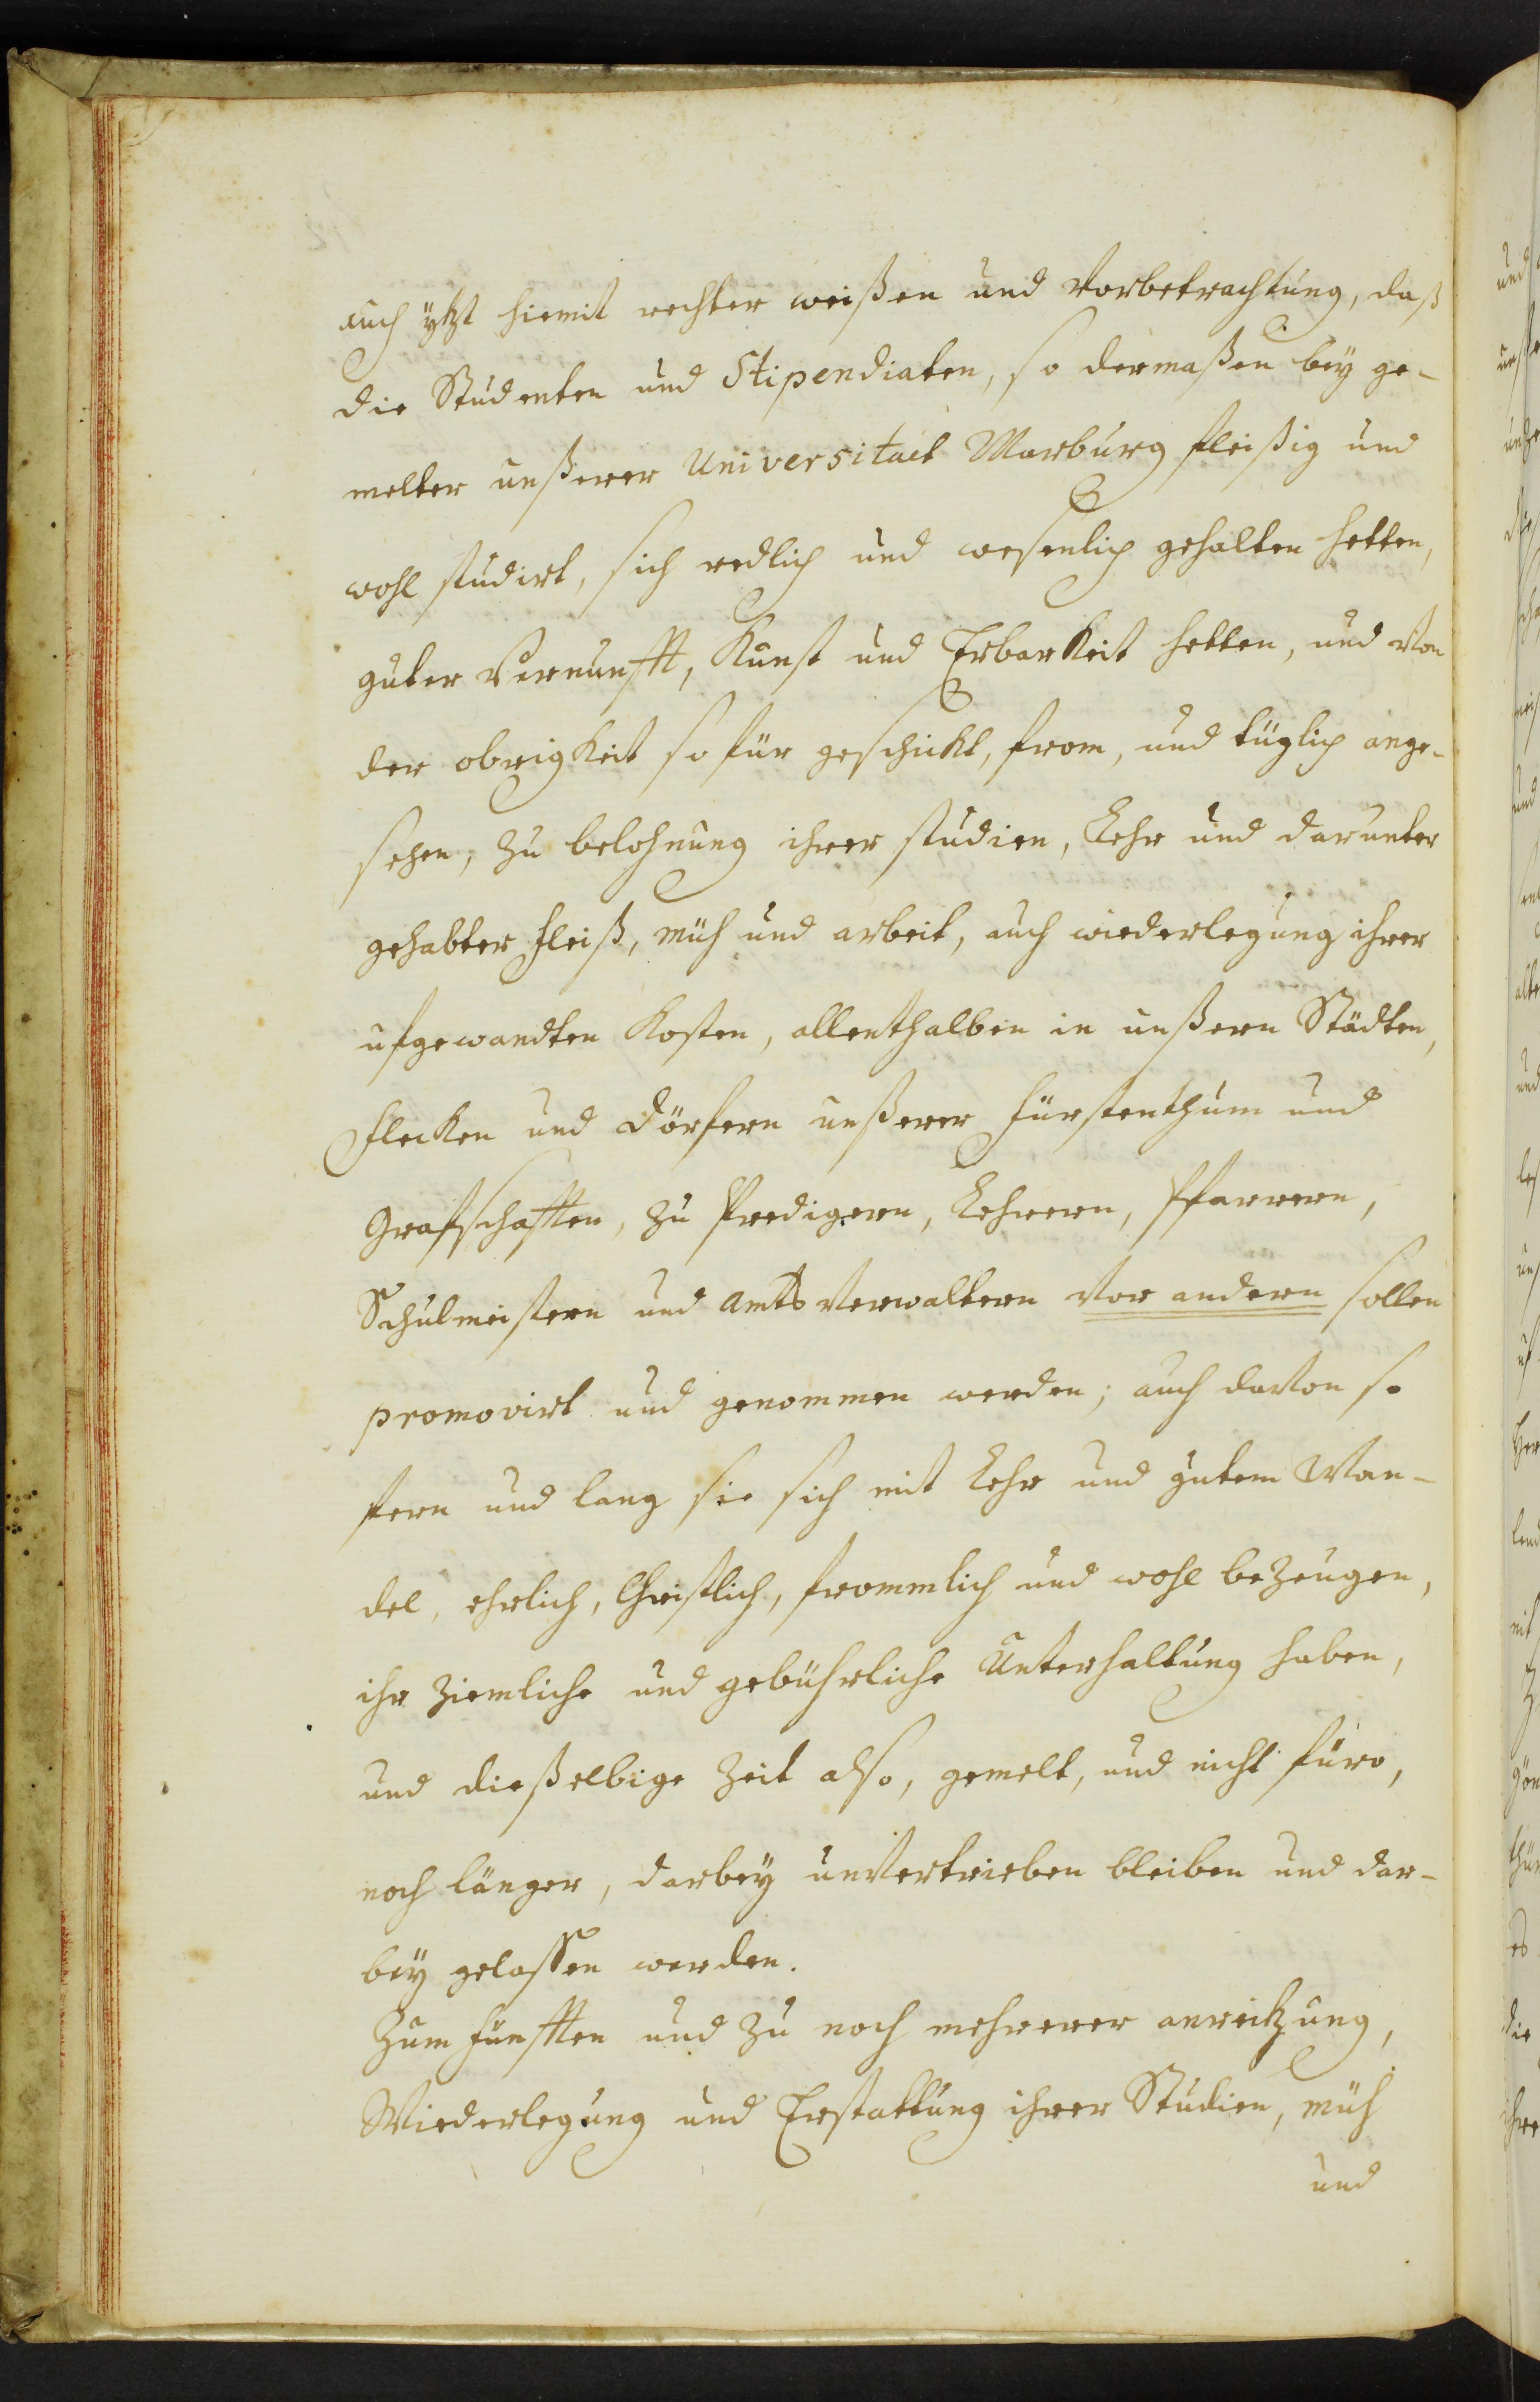 auch ytzt hiemit rechter weißen und Vorbetrachtung, daß
die Studenten und Stipendiaten, so dermaßen bey ge-
melter unßerer Universitaet Marburg fleißig und
wohl studirt, sich redlich und wesenlich gehalten hetten,
guter Vernunfft, Kunst und Erbarkeit hetten, und von
der obrigkeit so für geschickt, from, und tüglich ange-
sehen, zu belohnung ihrer studien, Lehr und darunter
gehabter fleiß, müh und arbeit, auch wiederlegung ihrer
ufgewandten Kosten, allenthalben in unßern Städten,
flecken und dörfern unßerer fürstenthum und
Grafschafften, zu Predigern, Lehrern, Pfarrern,
Schulmeistern und Amts Verwaltern vor andern sollen
promovirt und genommen werden; auch davon so
fern und lang sie sich mit Lehr und gutem Wan-
del, ehrlich, Christlich, frommlich und wohl bezeugen,
ihr ziemliche und gebührliche Unterhaltung haben,
und dießelbige Zeit also, gemelt, und nicht füro,
noch länger, darbey unvertrieben bleiben und dar-
bey gelassen werden.
Zum fünfften und zu noch mehrerer anreitzung,
Wiederlegung und Erstattung ihrer Studien, müh
und